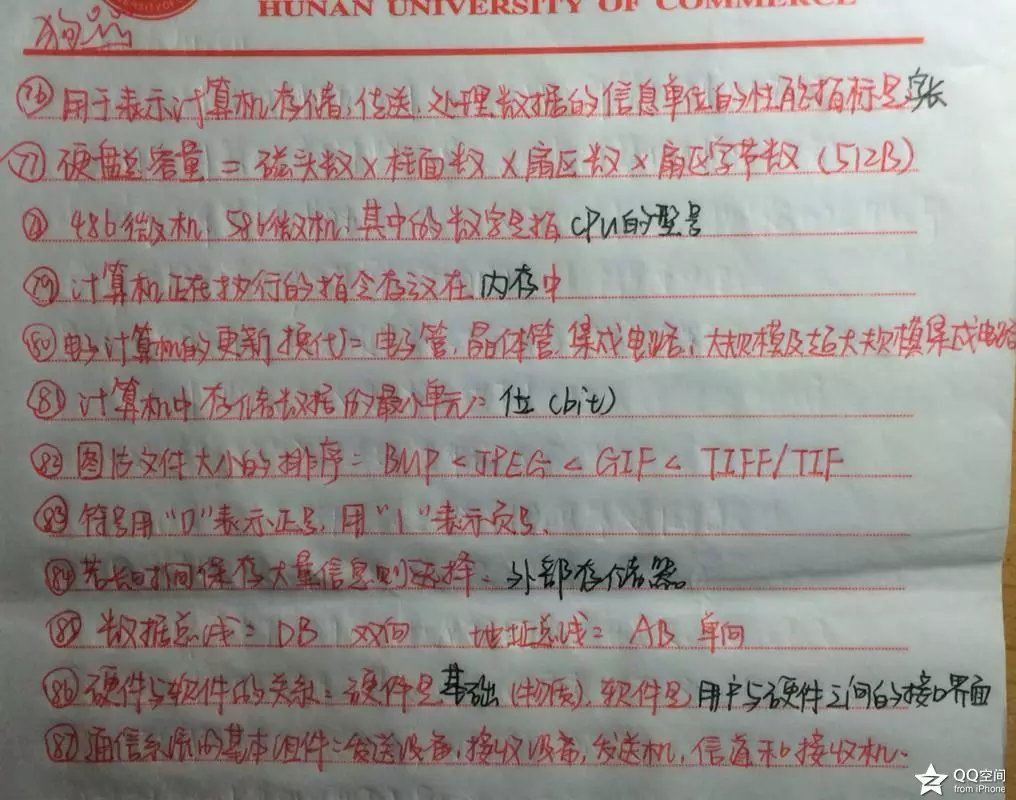 HUNAN UNIVERSITY OF COMMERCE
㊆ 用于表示计算机存储,传送,处理数据的信息单位的性能指标是字长
77 硬盘总容量 = 磁头数 × 柱面数 × 扇区数 × 扇区字节数 (512B)
486微机,586微机,其中的数字是指 CPU的型号
79 计算机正在执行的指令存放在 内存中
80 电子计算机的更新换代: 电子管, 晶体管, 集成电路, 大规模及超大规模集成电路
81 计算机中存储数据的最小单元: 位 (bit)
82 图片文件大小的排序 = BMP < JPEG < GIF < TIFF/TIF
83 符号用 "0" 表示正号, 用 "1" 表示负号.
84 若长时间保存大量信息则选择: 外部存储器。
85 数据总线: DB 双向 地址总线: AB 单向
86 硬件与软件的关系: 硬件是基础 (物质), 软件是 用户与硬件之间的接口界面
87 通信系统的基本组件: 发送设备, 接收设备, 发送机, 信道和接收机.
QQ空间
from iPhone